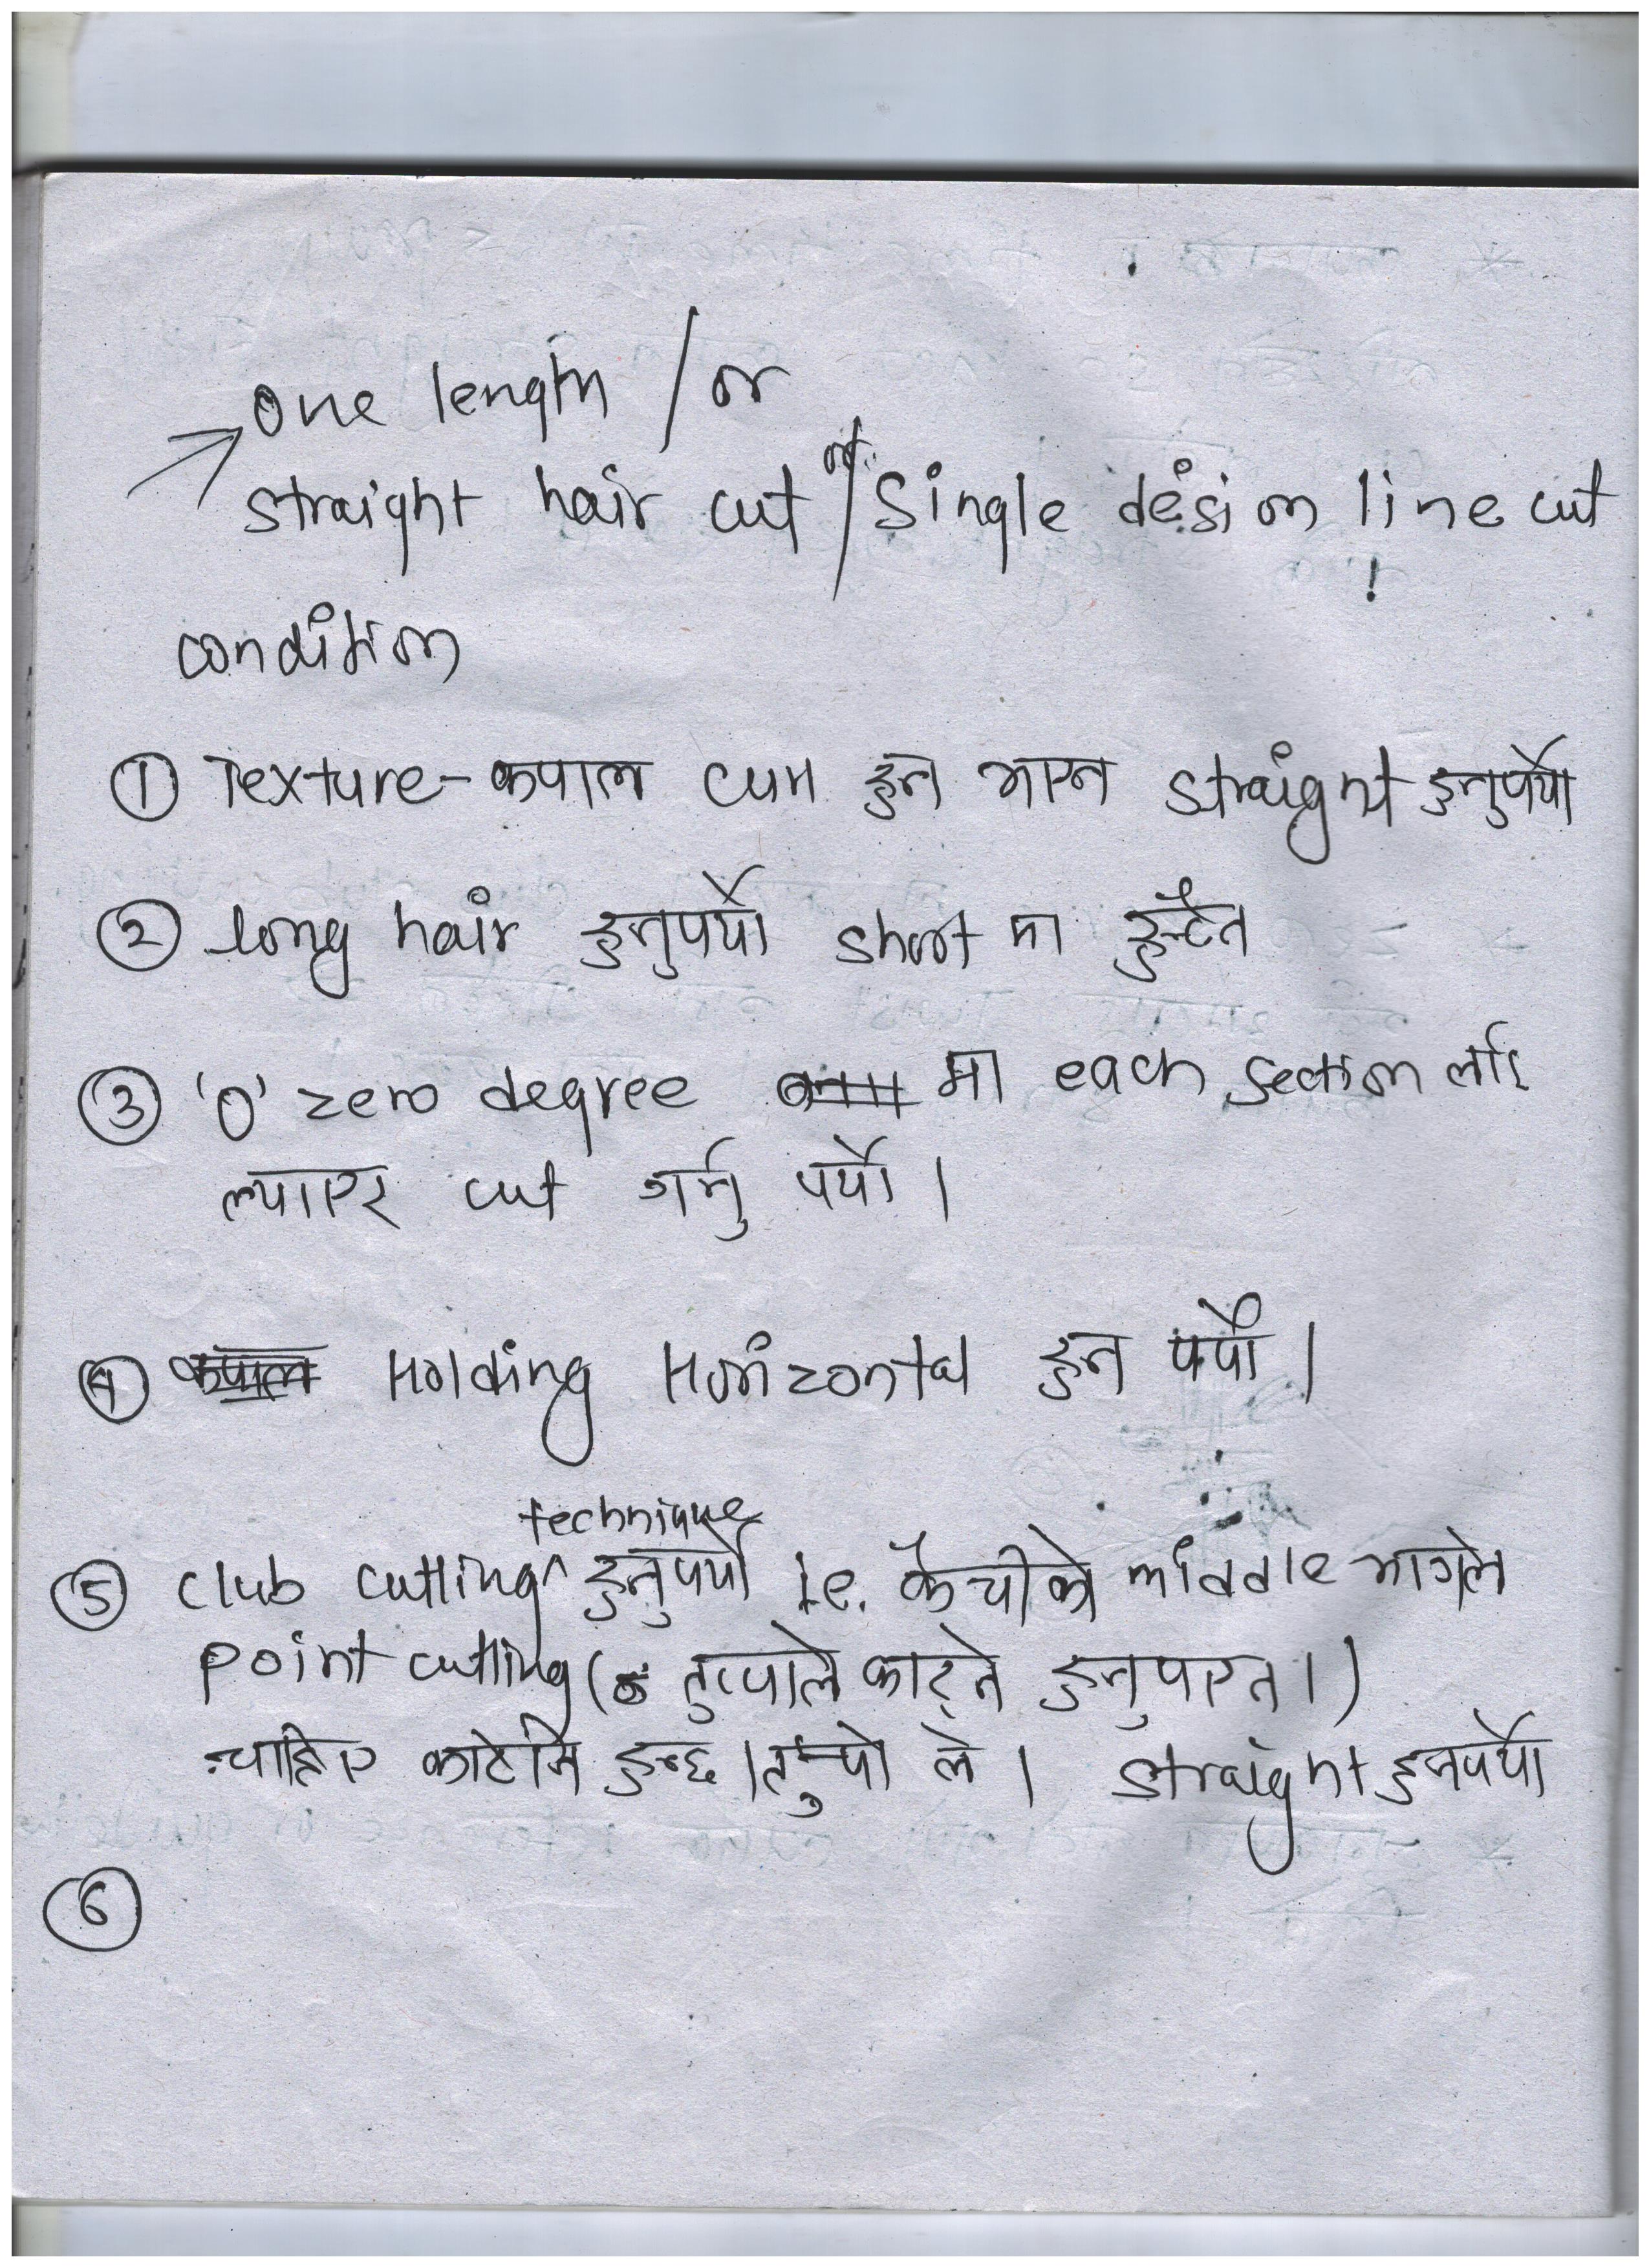 one length / or
straight hair cut or / single design line cut
condition
① Texture - कपाल curl हुन भएन straight हुनुपर्यो
② long hair हुनुपर्यो short मा हुन्दैन
③ '0' zero degree मा each section लाई
ल्याएर cut गर्नु पर्यो ।
④ Holding Horizontal हुन पर्यो ।
technique
⑤ club cutting ^ हुनुपर्यो i.e. कैचीको middle भागले
point cutting ( टुप्पाले काट्ने हुनुपएन । )
चाहिए काटेनि हुन्छ । टुप्पो ले । straight हुनपर्यो
⑥